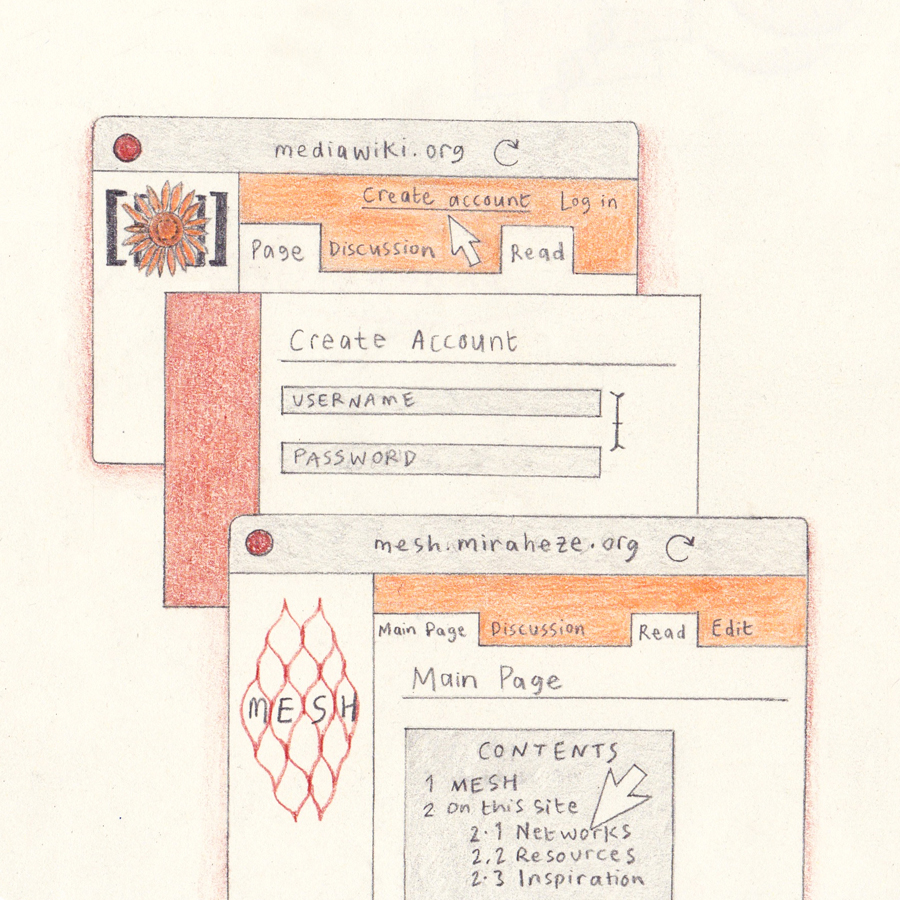 mediawiki.org
Create account Log in
Page Discussion Read
Create Account
USERNAME
PASSWORD
mesh.miraheze.org
Main Page Discussion Read Edit
MESH
Main Page
CONTENTS
1 MESH
2 on this site
2.1 Networks
2.2 Resources
2.3 Inspiration